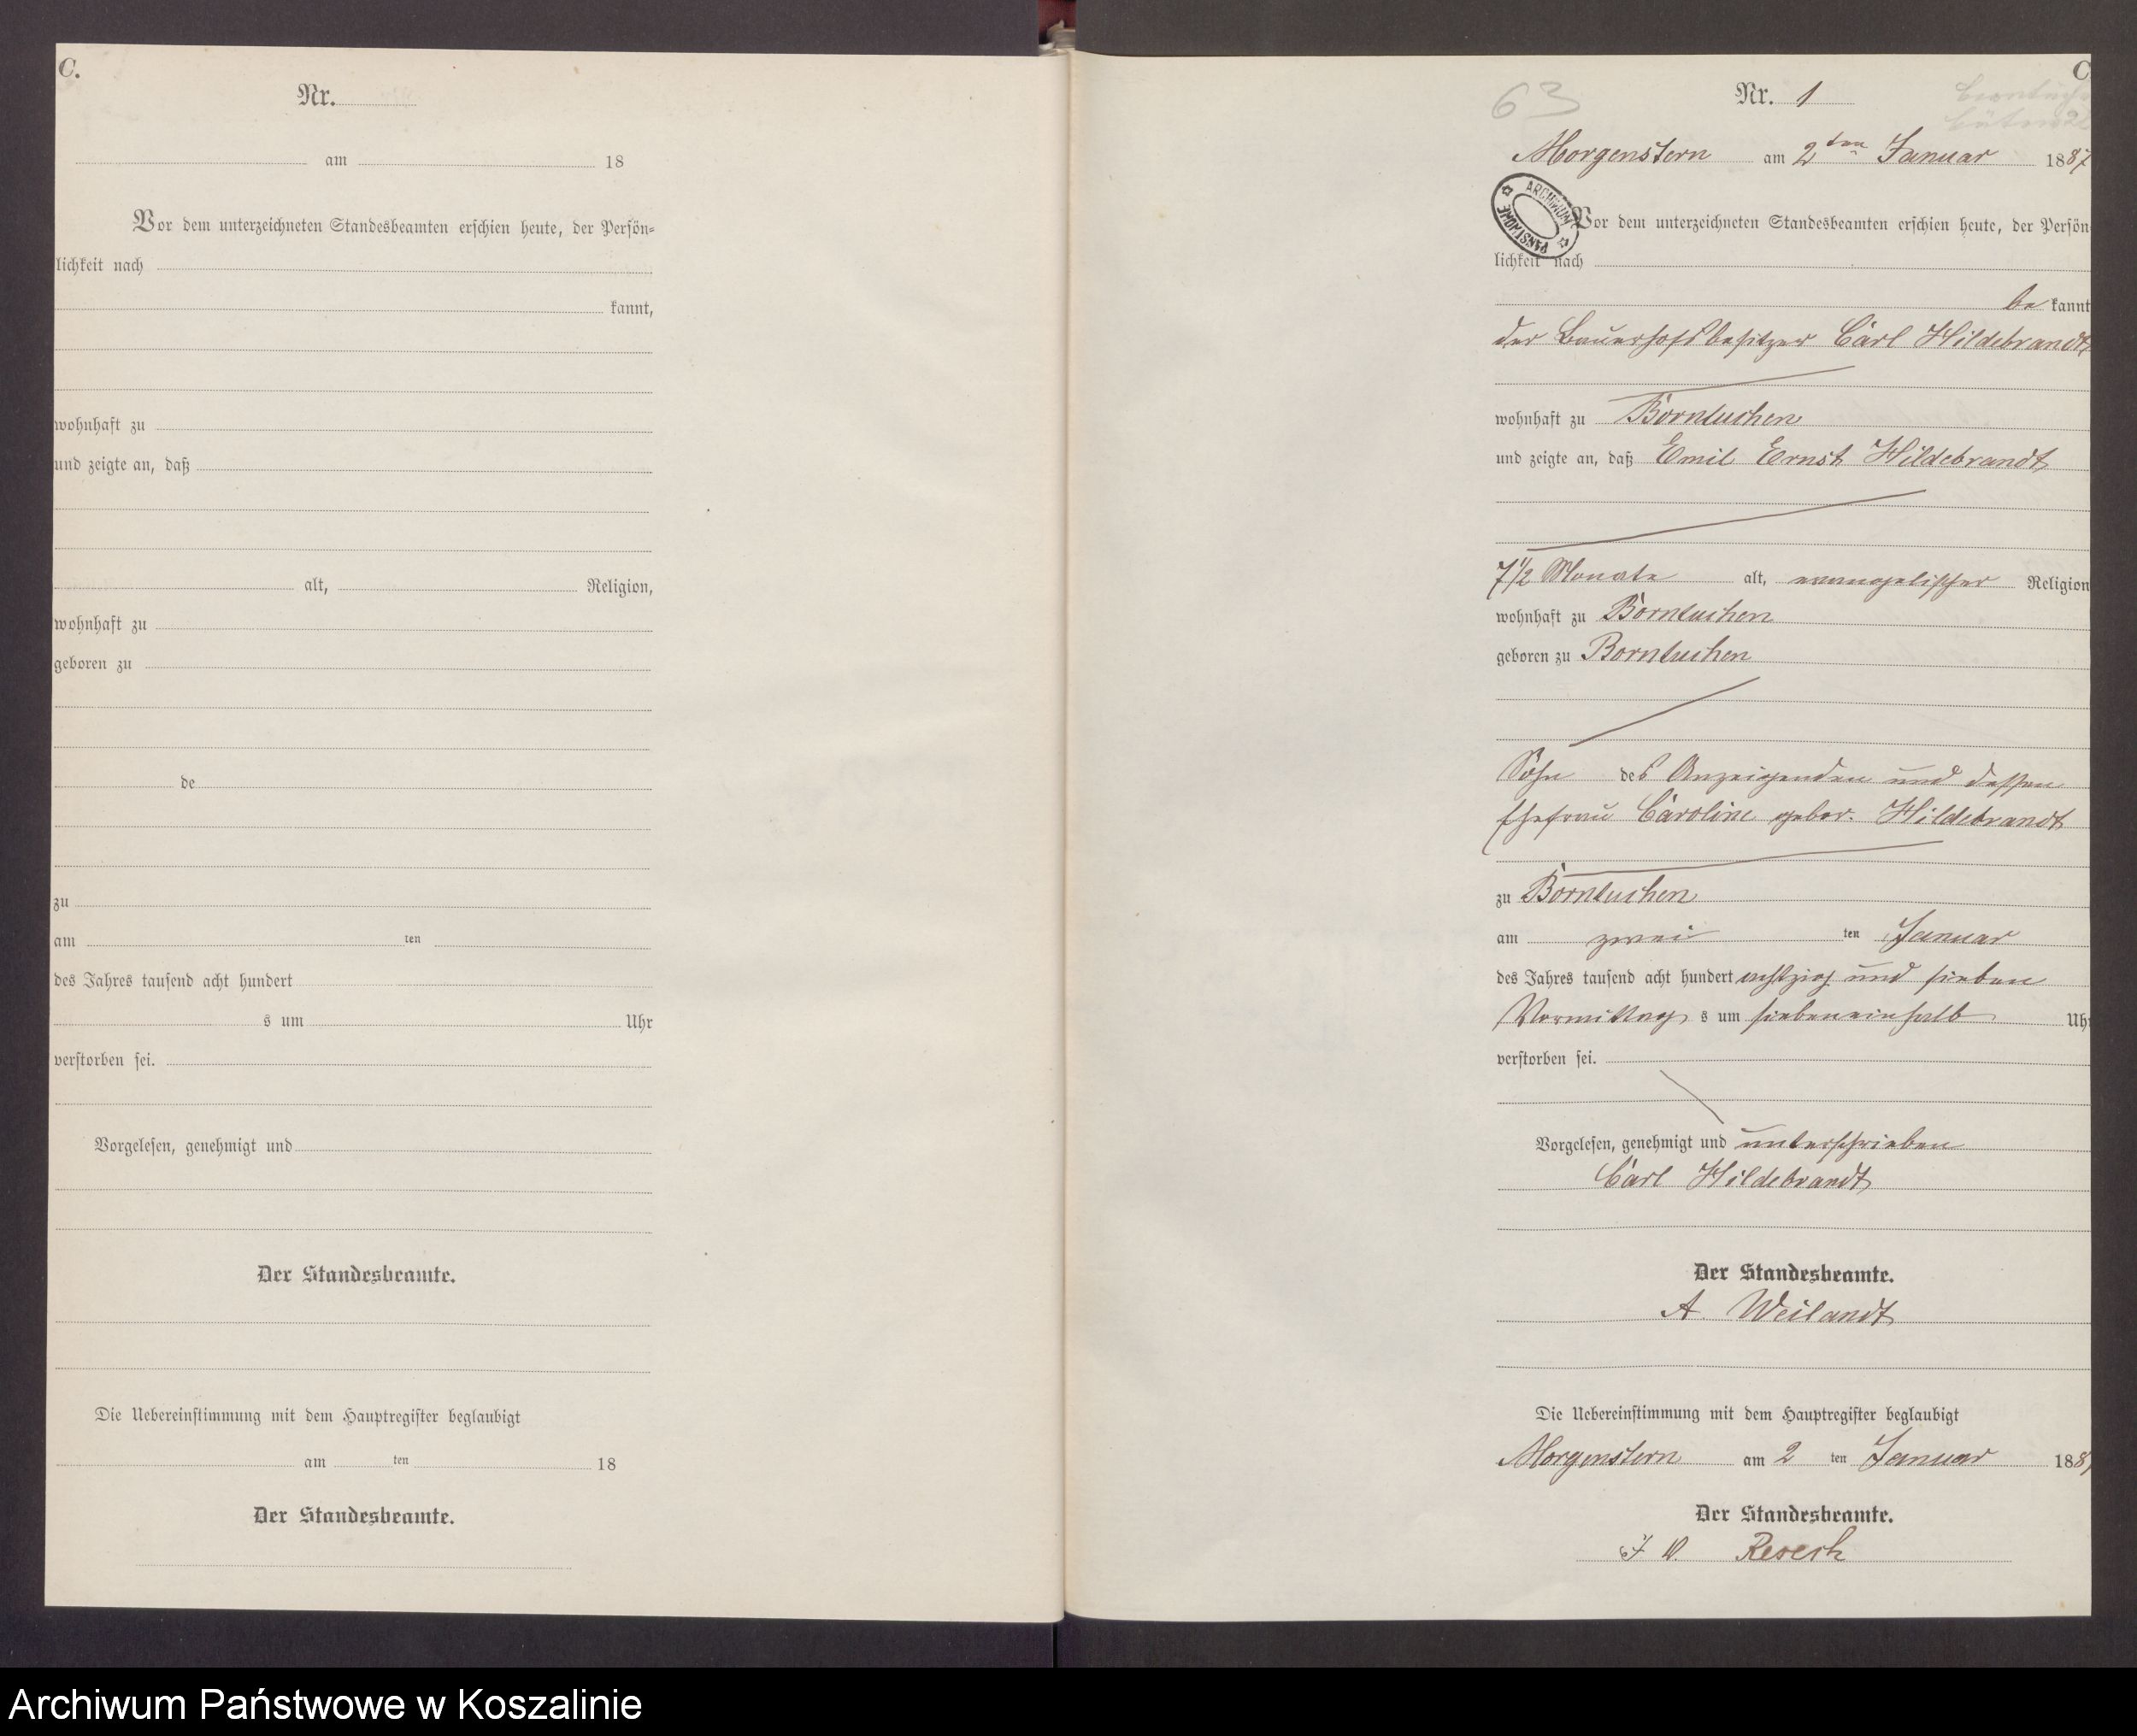 C.
Nr.
am 18
Vor dem unterzeichneten Standesbeamten erschien heute, der Persön-
lichkeit nach
kannt,
wohnhaft zu
und zeigte an, daß
alt, Religion,
wohnhaft zu
geboren zu
de
zu
am ten
des Jahres tausend acht hundert
s um Uhr
verstorben sei.
Vorgelesen, genehmigt und
Der Standesbeamte.
Die Uebereinstimmung mit dem Hauptregister beglaubigt
am ten 18
Der Standesbeamte.
C
63
Nr. 1
Morgenstern am 2ten Januar 1887
ARCHIWUM PAŃSTWOWE
Vor dem unterzeichneten Standesbeamten erschien heute, der Persön
lichkeit nach
be kannt
der Bauerhofsbesitzer Carl Hildebrandt
wohnhaft zu Borntuchen
und zeigte an, daß Emil Ernst Hildebrandt
7 1/2 Monate alt, evangelischer Religion
wohnhaft zu Borntuchen
geboren zu Borntuchen
Sohn des Anzeigenden und dessen
Ehefrau Caroline gebor. Hildebrandt
zu Borntuchen
am zwei ten Januar
des Jahres tausend acht hundert achtzig und sieben
Vormittag s um siebeneinhalb Uhr
verstorben sei.
Vorgelesen, genehmigt und unterschrieben
Carl Hildebrandt
Der Standesbeamte.
A. Weilandt
Die Uebereinstimmung mit dem Hauptregister beglaubigt
Morgenstern am 2 ten Januar 188
Der Standesbeamte.
Archiwum Państwowe w Koszalinie